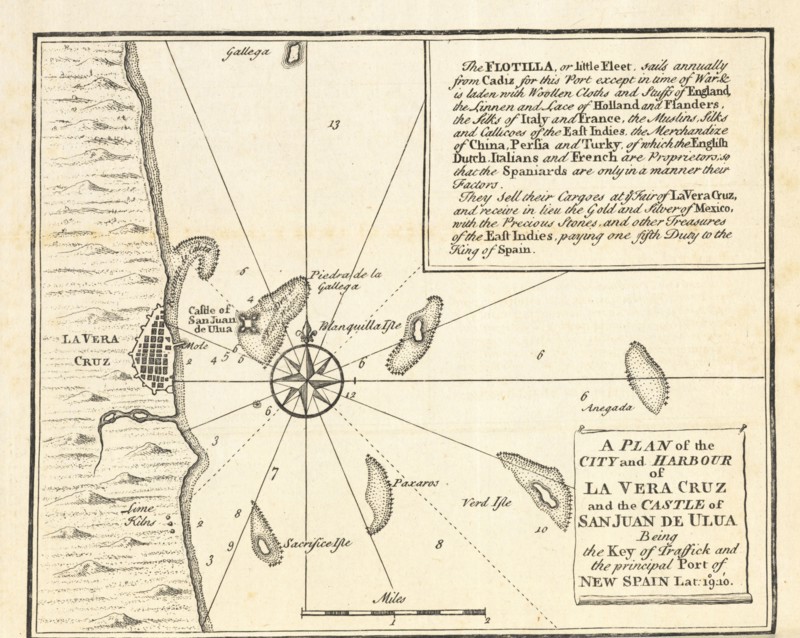 Gallega
13
The FLOTILLA, or little Fleet, sails annually
from Cadiz for this Port except in time of War &
is laden with Woollen Cloths and Stuffs of England,
the Linnen and Lace of Holland and Flanders,
the Silks of Italy and France, the Muslins, Silks
and Callicoes of the East Indies, the Merchandize
of China, Persia and Turky, of which the English
Dutch, Italians and French are Proprietors, so
that the Spaniards are only in a manner their
Factors.
They sell their Cargoes at ye Fair of La Vera Cruz,
and receive in lieu the Gold and Silver of Mexico,
with the Precious Stones, and other Treasures
of the East Indies, paying one fifth Duty to the
King of Spain.
5
Piedra de la
Gallega
4
Castle of
San Juan
de Ulua
Blanquilla Isle
LA VERA
CRUZ
Mole
2
4
5
6
6
6
6
12
6
6
Anegada
3
7
Paxaros
Verd Isle
10
Lime
Kilns
2
8
9
Sacrifice Isle
8
3
A PLAN of the
CITY and HARBOUR
of
LA VERA CRUZ
and the CASTLE of
SAN JUAN DE ULUA
Being
the Key of Traffick and
the principal Port of
NEW SPAIN Lat: 19°.10'.
Miles
1
2